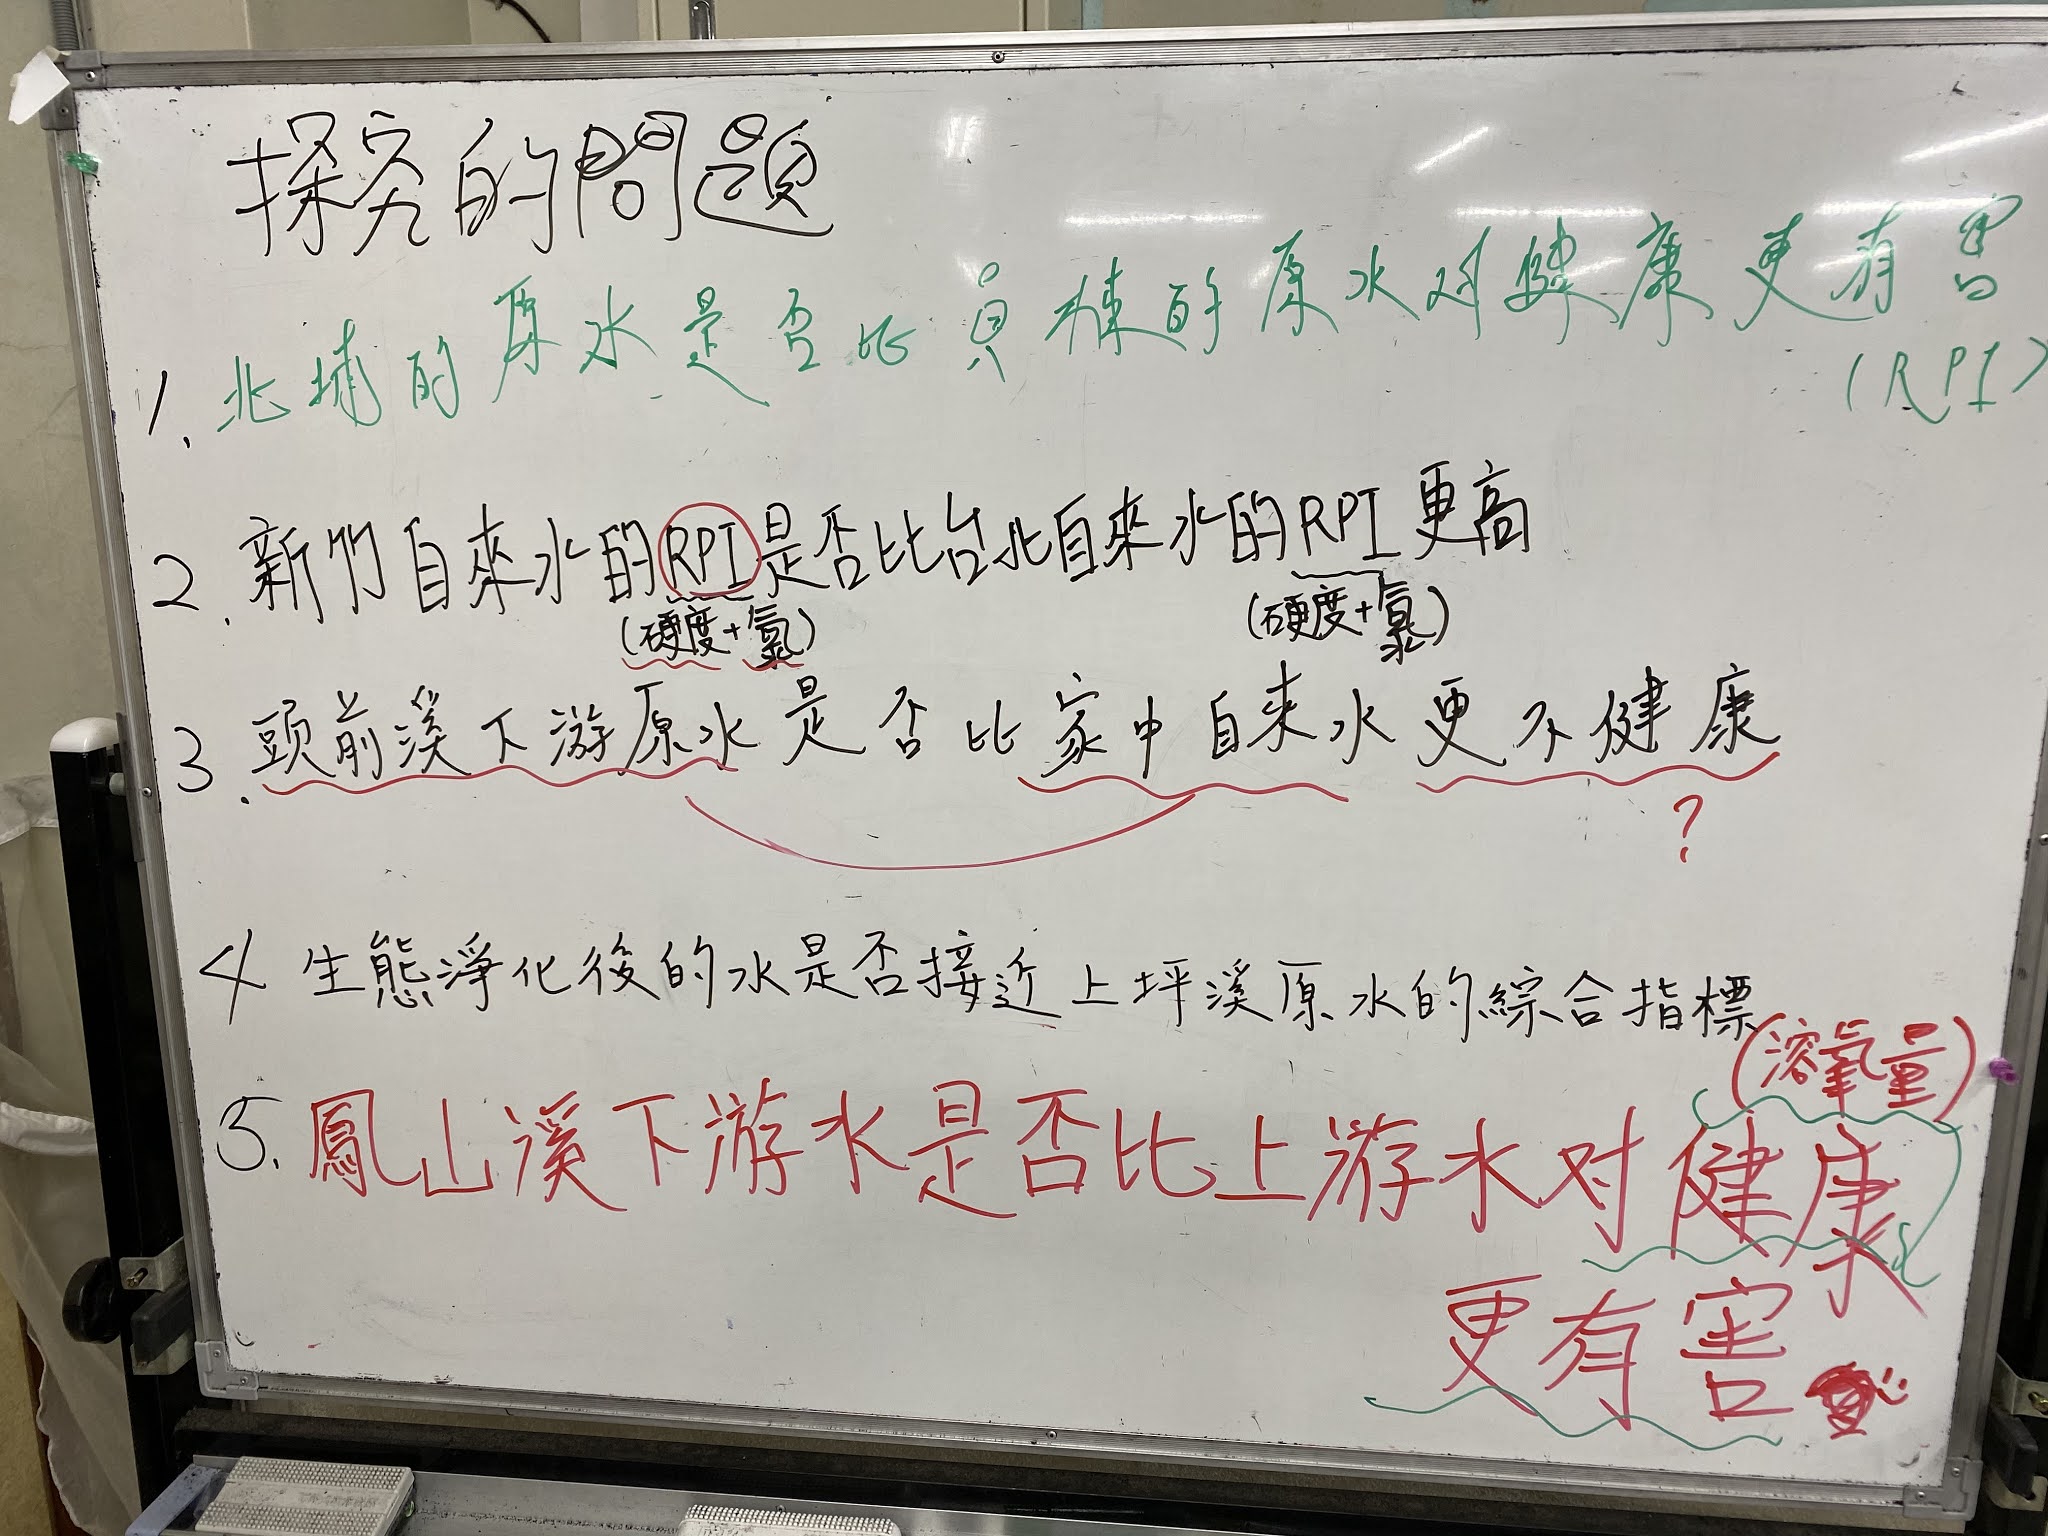 探究的問題
1. 北埔的原水是否比員棟的原水对健康更有害
(RPI)
2. 新竹自來水的RPI是否比台北自來水的RPI更高
(硬度+氯) (硬度+氯)
3. 頭前溪下游原水是否比家中自来水更不健康
?
4 生態淨化後的水是否接近上坪溪原水的綜合指標
(溶氧量)
5. 鳳山溪下游水是否比上游水对健康
更有害